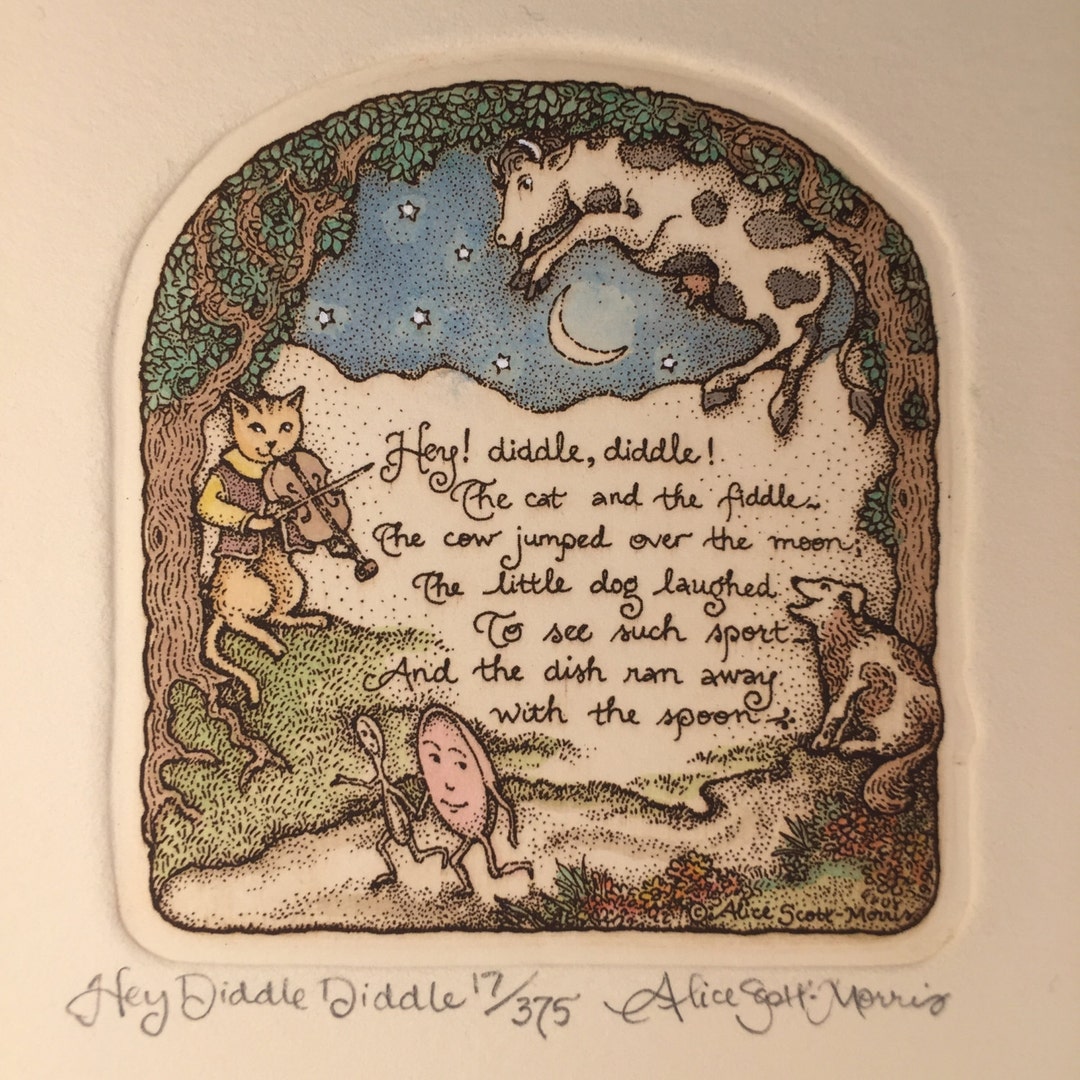 Hey! diddle, diddle!
The cat and the fiddle~
The cow jumped over the moon;
The little dog laughed
To see such sport~
And the dish ran away
with the spoon
© Alice Scott-Morris
Hey Diddle Diddle 17/375 Alice Scott-Morris